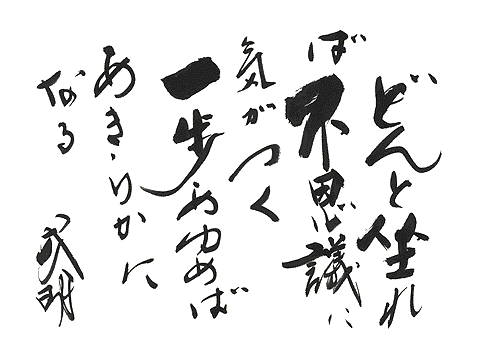 どんと坐れ
ば不思議に
気がつく
一歩あゆめば
あきらかに
なる